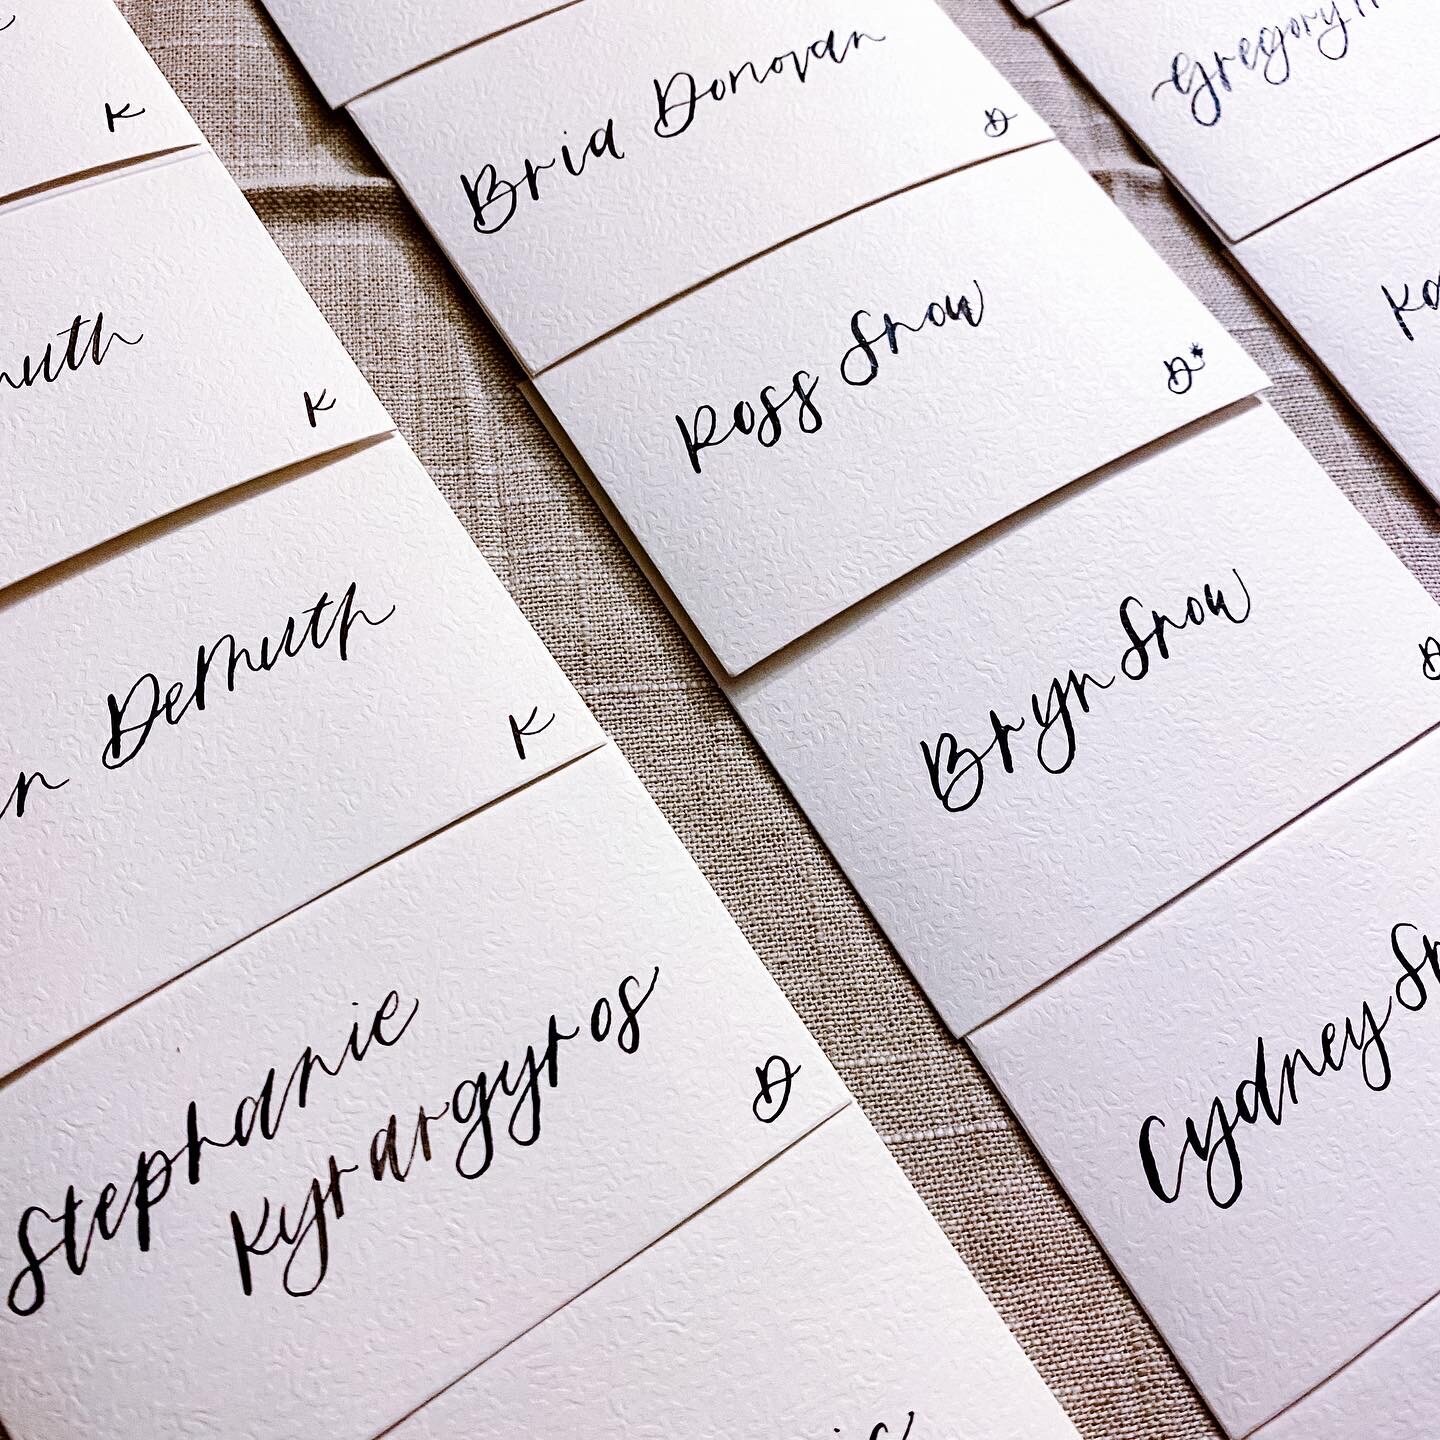 K
K
DeMuth
K
Stephanie
Kyrargyros
D
Bria Donovan
D
Ross Snow
D*
Bryn Snow
Cydney
Gregory